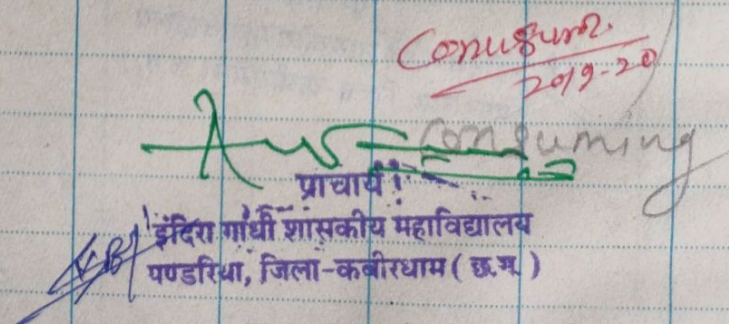 Consum.
2019-20
Consuming
प्राचार्य
इंदिरा गांधी शासकीय महाविद्यालय
पण्डरिया, जिला-कबीरधाम ( छ.ग. )